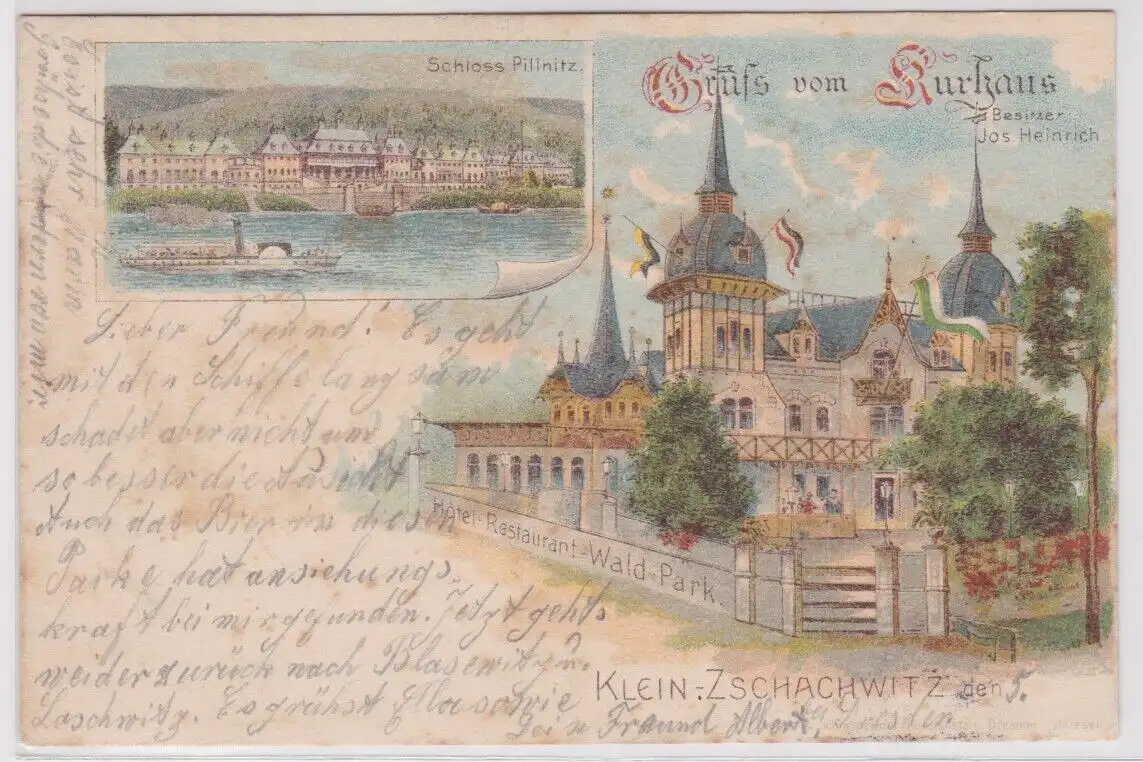 Schloss Pillnitz.
Gruss vom Kurhaus
Besitzer
Jos. Heinrich
Hotel-Restaurant-Wald-Park.
KLEIN-ZSCHACHWITZ den 5.
Lieber Freund! Es geht
mit den Schiffe langsam
schadet aber nicht um
so besser die Aussicht
Auch das Bier in diesen
Parke hat ansiehungs-
kraft bei mir gefunden. Jetzt gehts
weider zurück nach Blasewitz u.
Loschwitz. Es grühst
Dein Freund Albert
Dresden
Es ist sehr warm